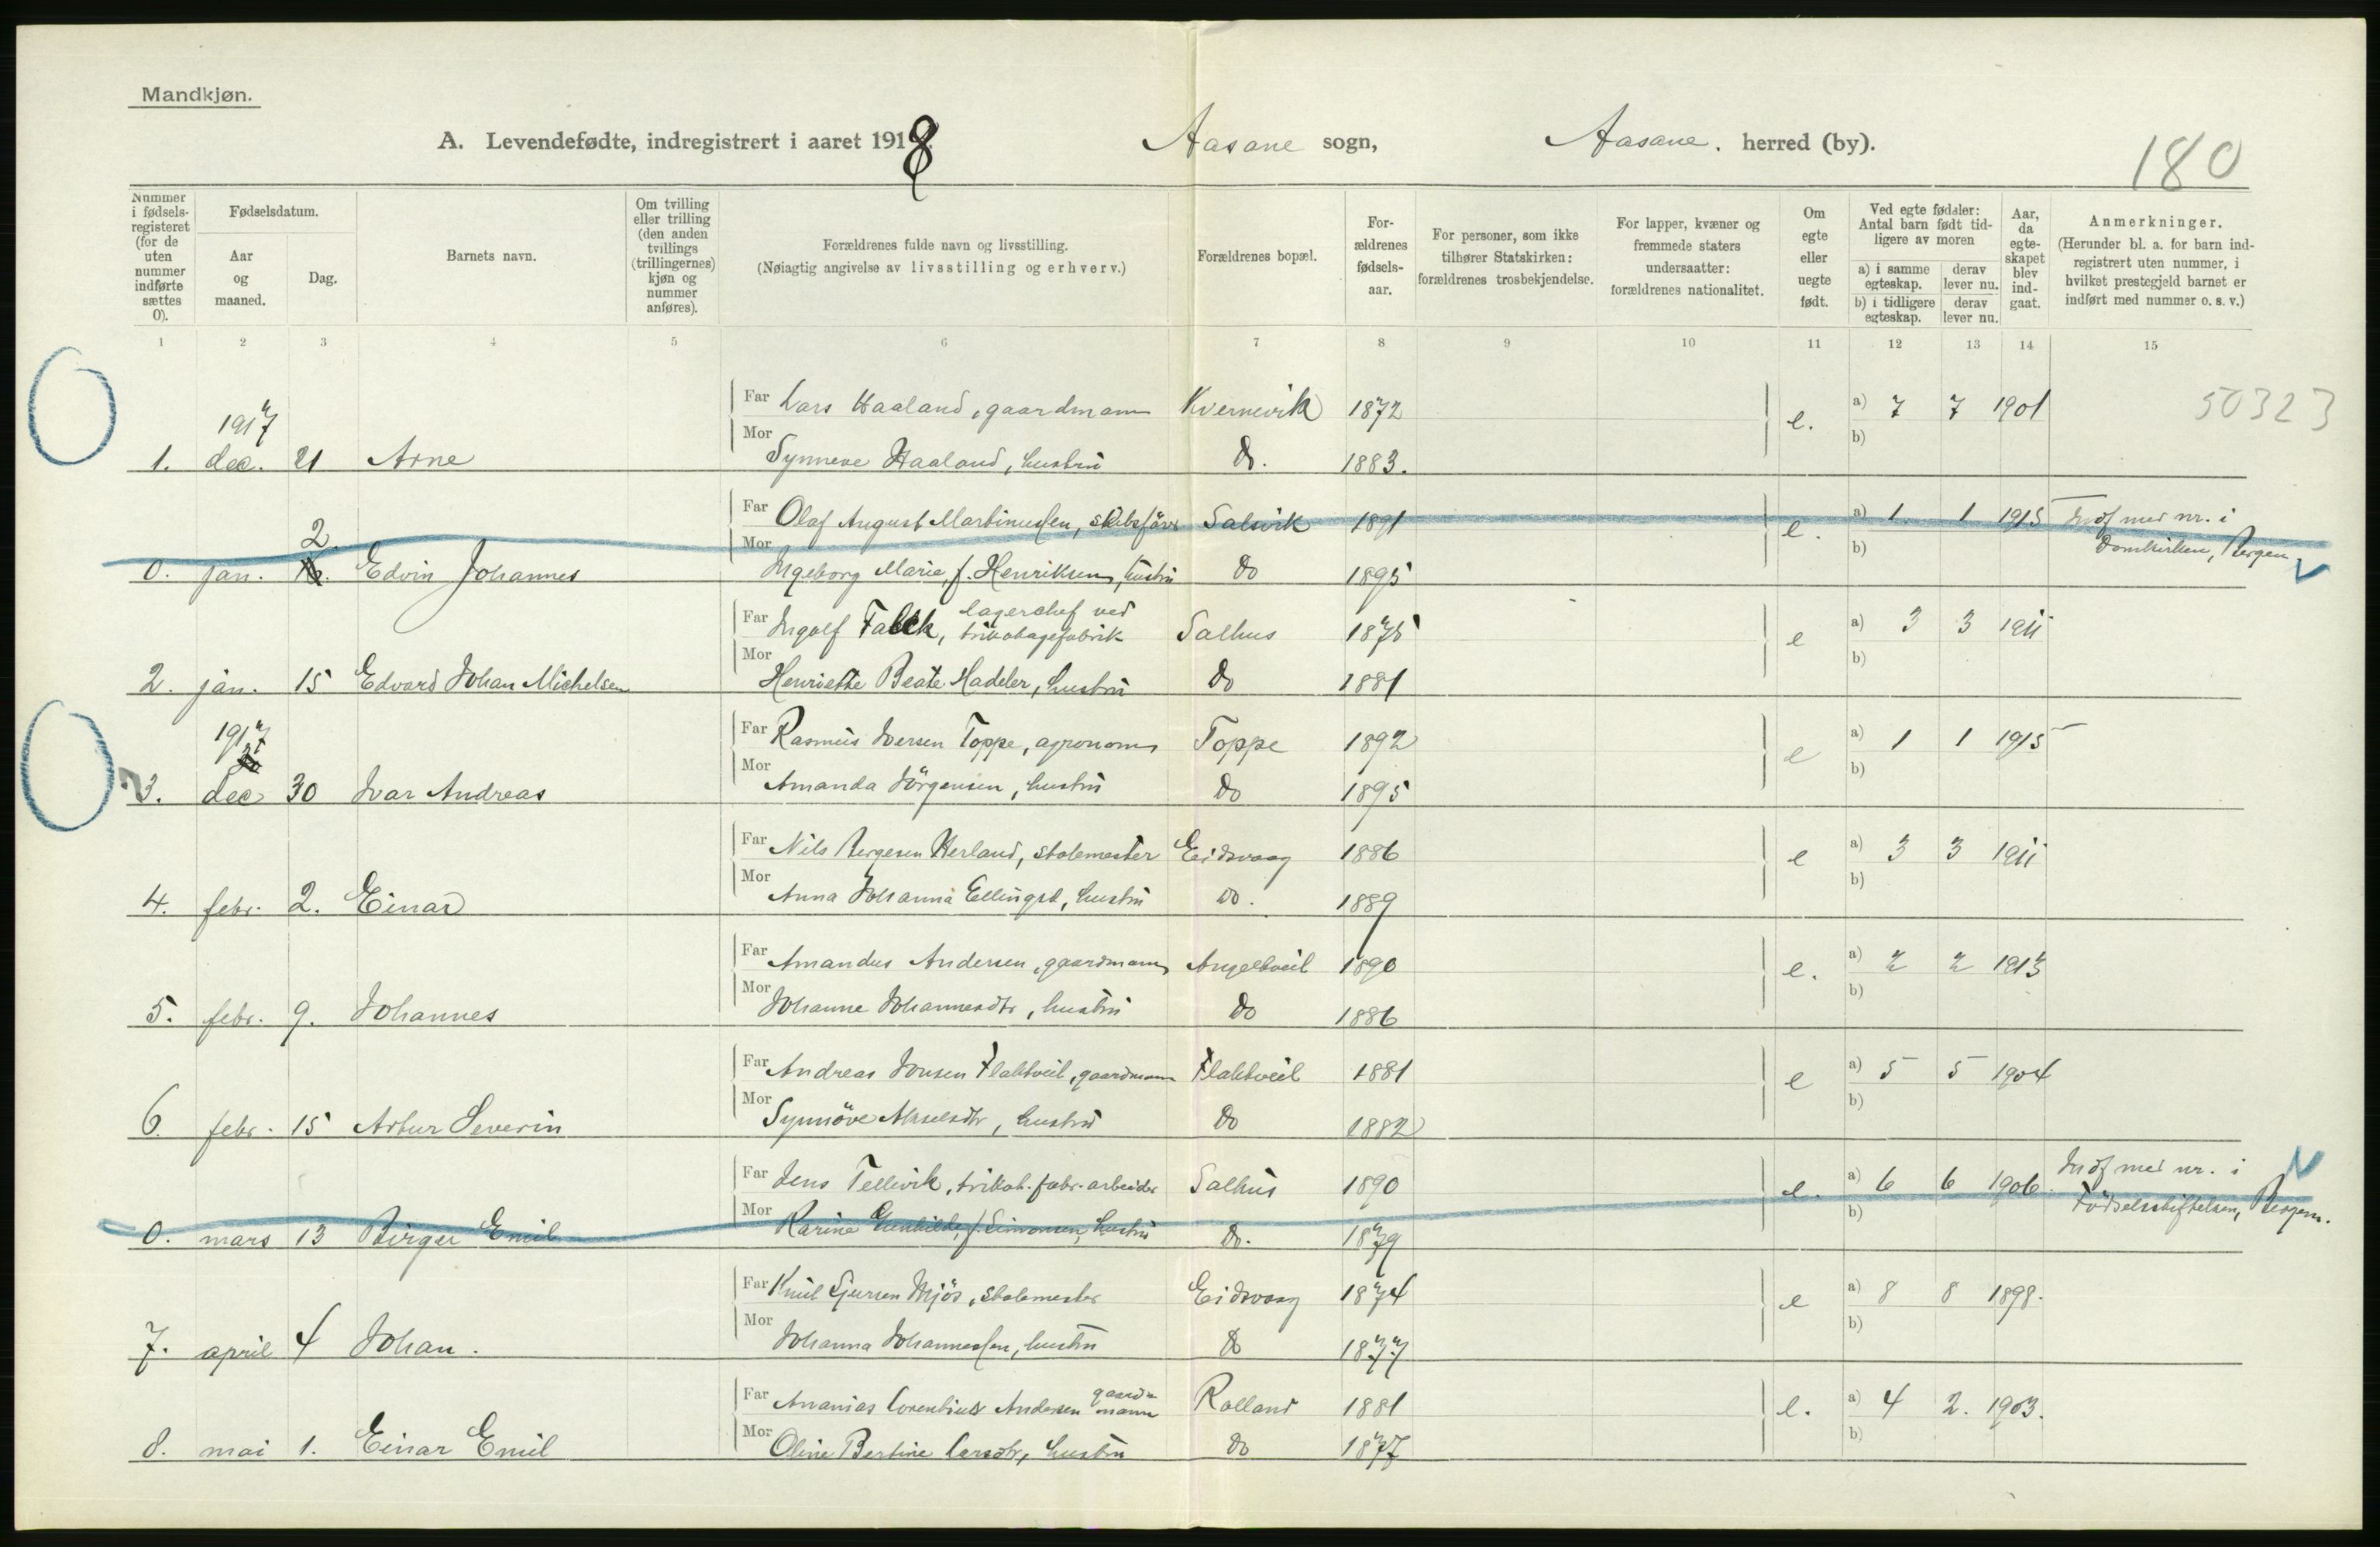 Mandkjøn.
A. Levendefødte, indregistrert i aaret 1918. Aasane sogn, Aasane. herred (by).
180
Nummer i fødsels-registeret (for de uten nummer indførte sættes 0).
Fødselsdatum.
Aar og maaned.
Dag.
Barnets navn.
Om tvilling eller trilling (den anden tvillings (trillingernes) kjøn og nummer anføres).
Forældrenes fulde navn og livsstilling.
(Nøiagtig angivelse av livsstilling og erhverv.)
Forældrenes bopæl.
For-ældrenes fødsels-aar.
For personer, som ikke tilhører Statskirken: forældrenes trosbekjendelse.
For lapper, kvæner og fremmede staters undersaatter: forældrenes nationalitet.
Om egte eller uegte født.
Ved egte fødsler: Antal barn født tid-ligere av moren
a) i samme egteskap. derav lever nu.
b) i tidligere egteskap. derav lever nu.
Aar, da egte-skapet blev ind-gaat.
Anmerkninger.
(Herunder bl. a. for barn ind-registrert uten nummer, i hvilket prestegjeld barnet er indført med nummer o. s. v.)
1 2 3 4 5 6 7 8 9 10 11 12 13 14 15
1917 Far Lars Haaland, gaardmann Kvernevik 1872 e. a) 7 7 1901 50323
1. dec. 21 Arne Mor Synneve Haaland, hustru do. 1883. b)
2 Far Olaf August Martinussen, skibsförer Salsvik 1891 e. a) 1 1 1915 Indf med nr. i
0. jan. Edvin Johannes Mor Ingeborg Marie, f. Henriksen, hustru do 1895 b) Domkirken, Bergen
Far Ingolf Falck, lagerchef ved trikotagefabrik Salhus 1875 e a) 3 3 1911
2. jan. 15 Edvard Johan Michelsen Mor Henriette Beate Madeler, hustru do 1881 b)
1917 Far Rasmus Iversen Toppe, agronom Toppe 1892 e a) 1 1 1915
3. dec 30 Ivar Andreas Mor Amanda Jörgensen, hustru do 1895 b)
Far Nils Bergesen Herland, stolemester Eidsvaag 1886 e a) 3 3 1911
4. febr. 2. Einar Mor Anna Johanna Ellingsd, hustru do. 1889 b)
Far Amandus Andersen, gaardmann Angeltveit 1890 e. a) 2 2 1913
5. febr. 9. Johannes Mor Johanne Johannesdtr, hustru do 1886 b)
Far Andreas Jonsen Flaktveit, gaardmann Flaktveit 1881 e a) 5 5 1904
6. febr. 15 Artur Severin Mor Synnöve Akselsdtr, hustru do 1882 b)
Far Jens Tellevik, trikot. fabr. arbeider Salhus 1890 e. a) 6 6 1906. Indf med nr. i
0. mars 13 Birger Emil Mor Karine Gunhilde, f. Simonsen, hustru do. 1879 b) Födselsstiftelsen, Bergen.
Far Knut Sjursen Mjös, stolemester Eidsvaag 1874 e a) 8 8 1898.
7. april 4 Johan. Mor Johanna Johannessen, hustru do 1877 b)
Far Ananias Lorentius Andersen gaardmann Rolland 1881 e. a) 4 2. 1903.
8. mai 1. Einar Emil Mor Oline Bertine Larsdtr, hustru do 1877 b)